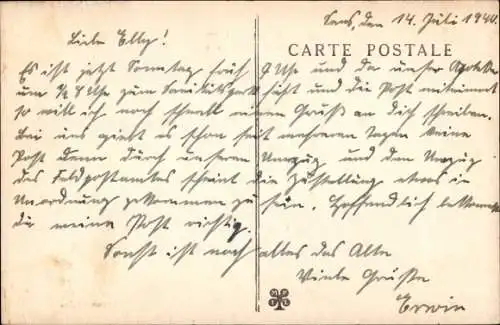 Sens, den 14. Juli 1940.
Liebe Elly!
CARTE POSTALE
Es ist jetzt Sonntag früh 9 Uhr und da unser Apotheker
um 1/2 8 Uhr zum Sanitätspark fährt und die Post mitnimmt
so will ich noch schnell einen Gruß an dich schreiben.
Bei uns giebt es schon seit mehreren Tagen keine
Post denn durch unseren Umzug und den Umzug
des Feldpostamtes scheint die Zustellung etwas in
Unordnung gekommen zu sein. Hoffendlich bekommst
du meine Post richtig.
Sonst ist noch alles das Alte
Viele Grüße
Erwin